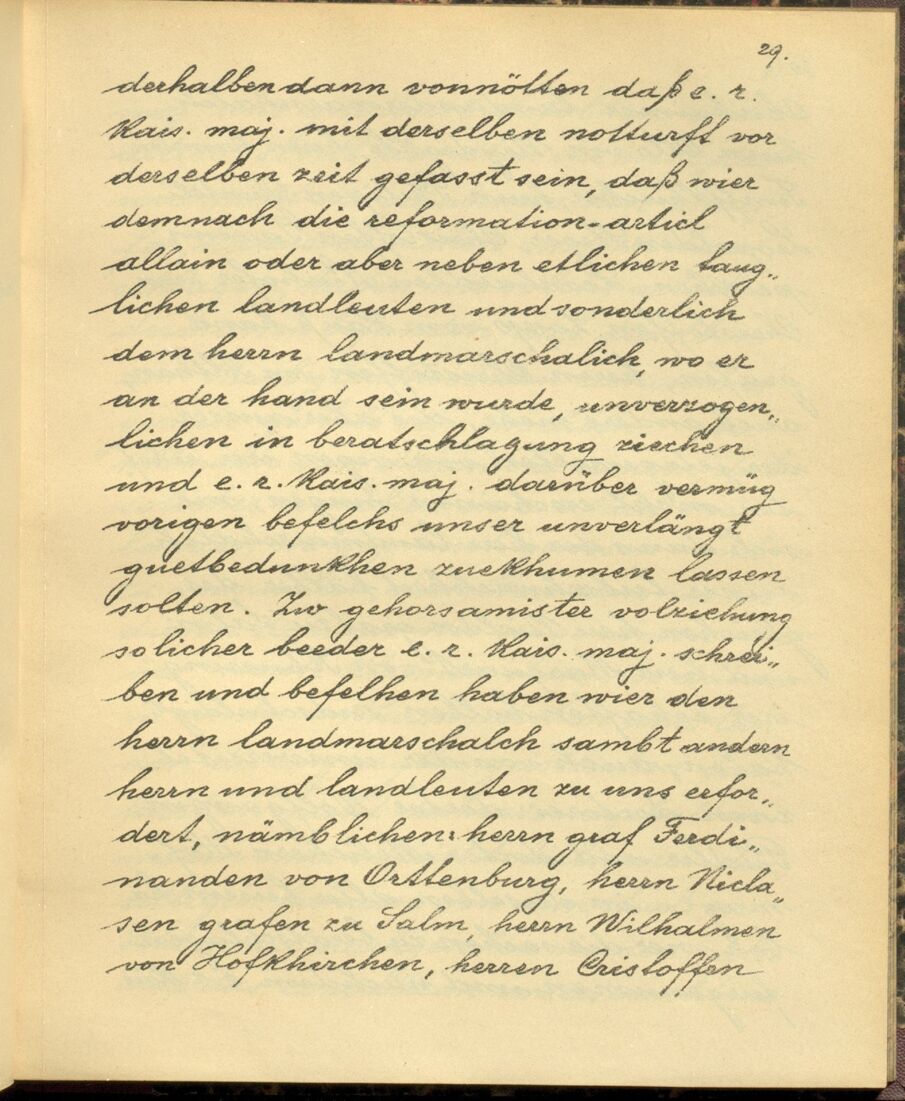 29.
derhalben dann vonnötten daß e. r.
Kais. maj. mit derselben notturft vor
derselben zeit gefasst sein, daß wier
demnach die reformation-articl
allain oder aber neben etlichen taug„
lichen landleuten und sonderlich
dem herrn landmarschalich, wo er
an der hand sein wurde, unverzogen„
lichen in beratschlagung ziechen
und e. r. Kais. maj. darüber vermüg
vorigen befelchs unser unverlängt
guetbedunkhen zuekhumen lassen
solten. Zw gehorsamister volziehung
solicher beeder e. r. Kais. maj. schrei„
ben und befelhen haben wier den
herrn landmarschalch sambt andern
herrn und landleuten zu uns erfor„
dert, nämblichen: herrn graf Ferdi„
nanden von Orttenburg, herrn Nicla„
sen grafen zu Salm, herrn Wilhalmen
von Hofkhirchen, herren Cristoffen